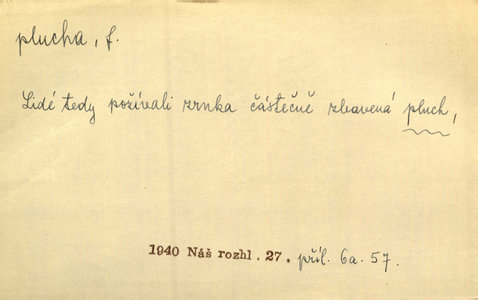 plucha, f.
Lidé tedy požívali zrnka částečně zbavená pluch,
1940 Náš rozhl. 27. příl. 6a. 57.